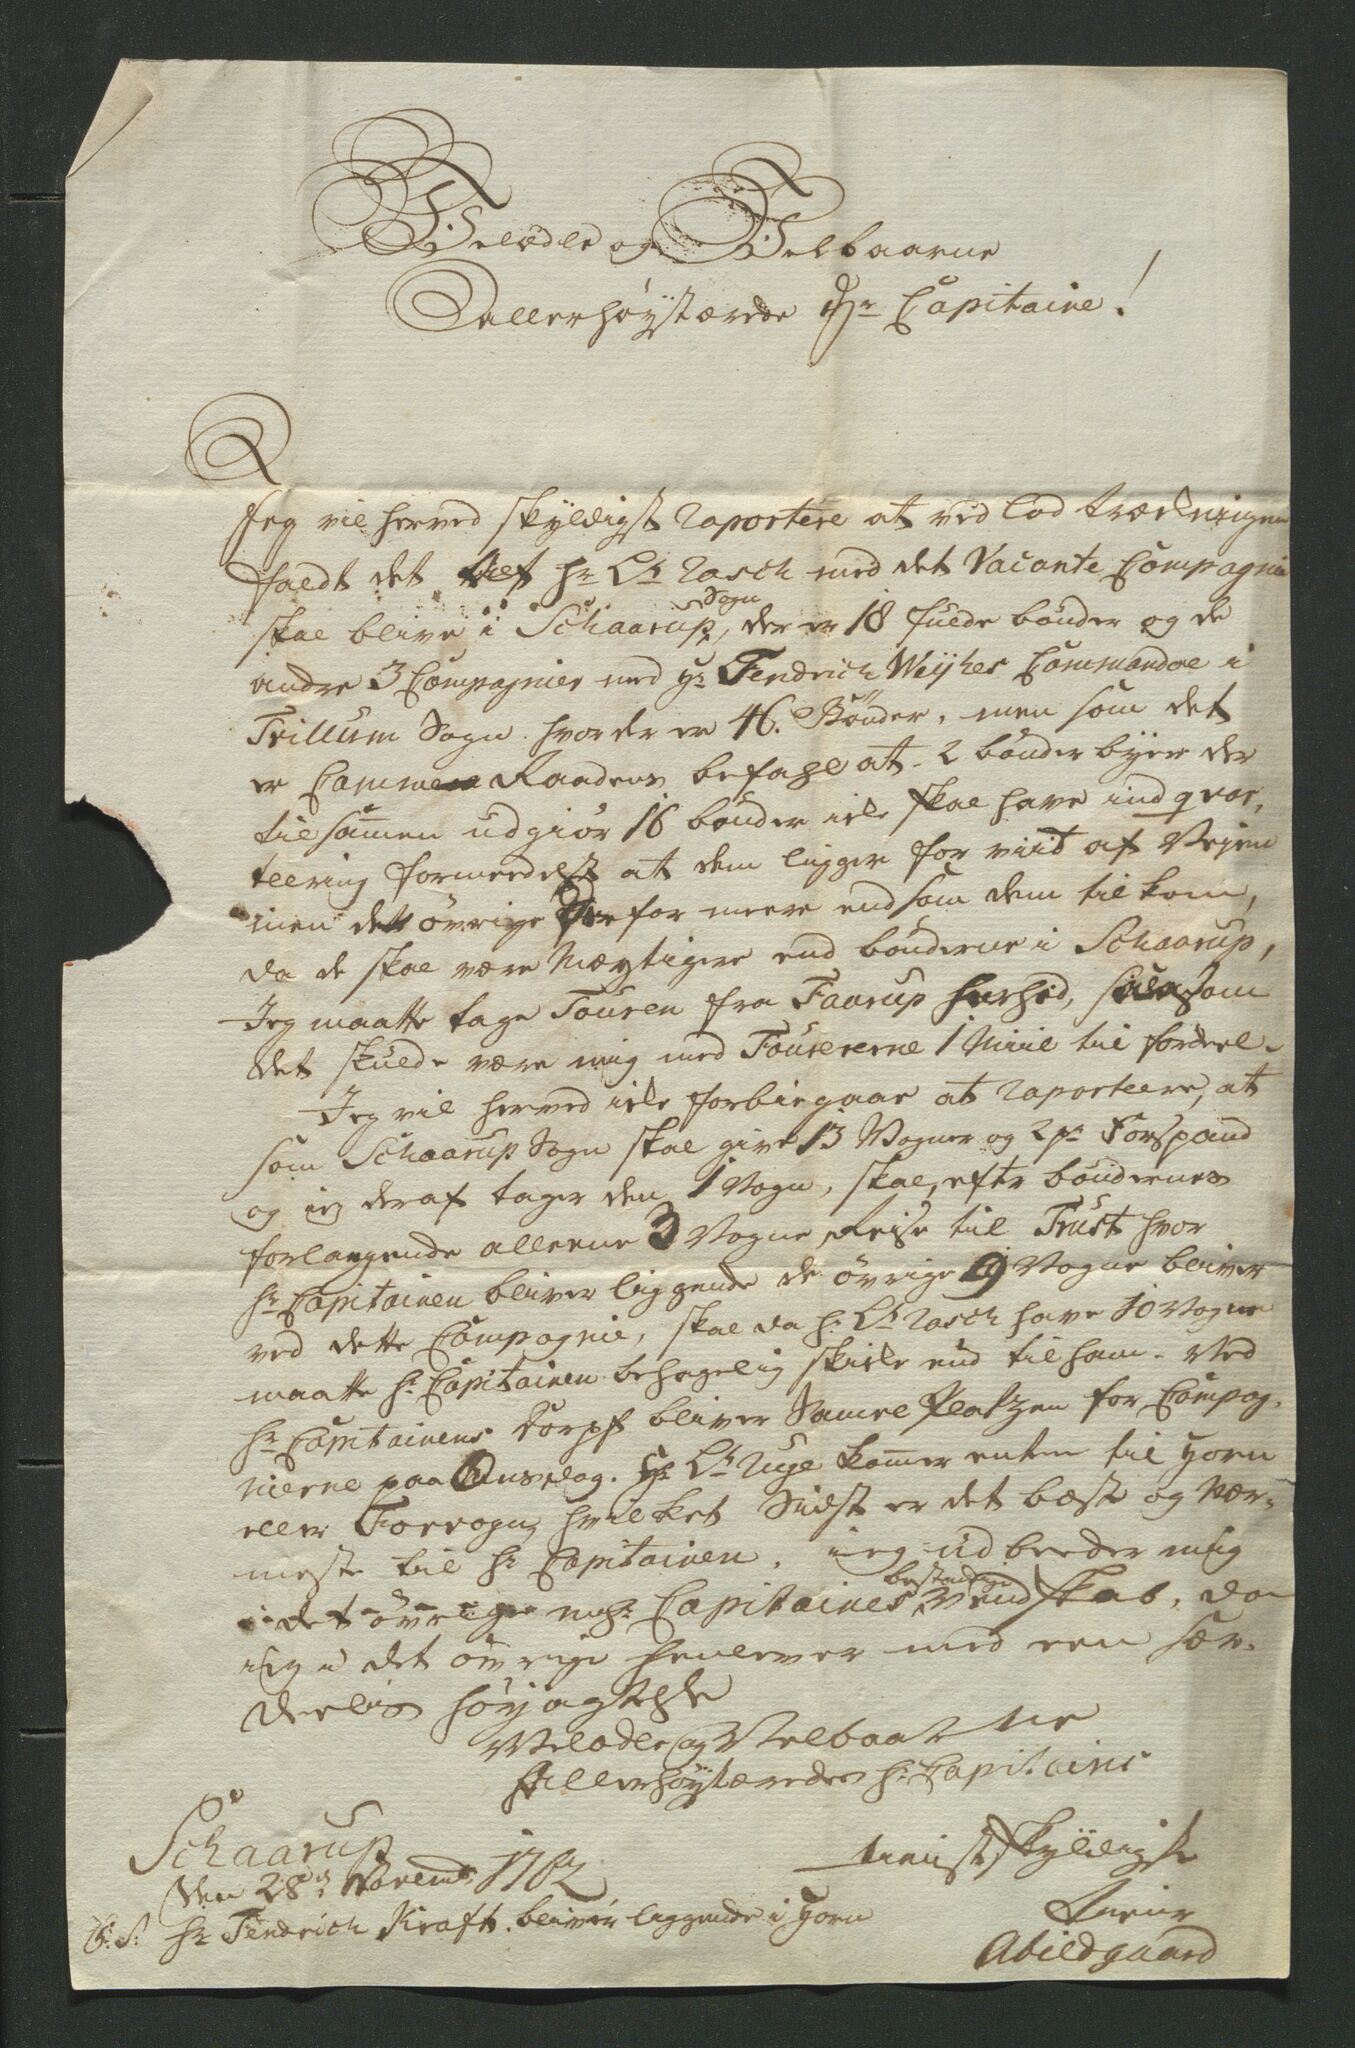 Velædle og Velbaarne
Allerhøystærede Hr Capitaine!
Jeg vil herved skyldigst raportere at ved Lod trækningen
faldt det Hr Lt Rasch med det Vacante Compagnie
skal blive i Schaarup Sogn, der er 18 fulde bønder og de
andre 3 Compagnier med Hr Fendrich Weyhes Commando i
Trillum Sogn hvor der er 46. Bønder, men som det
er Cammer Raadens befahl at 2 bønder byer der
tilsammen udgiør 16 bønder icke skal have indqvar,
teering formedelst at dem ligger for viit af Vejen
men det øvrige for meere end som dem tilkom,
da de skal være Mægtigere end bønderne i Schaarup,
Jeg maatte tage Touren fra Faarup herhid, som
det skulde være mig med Fourererne 1 Miil til fordeel.
Jeg vil herved icke forbiegaae at raporteere, at
som Schaarup Sogn skal give 13 Vogner og 2 pr Forspand
og jeg deraf tager den 1 Vogn, skal, efter bøndernes
forlangende alleene 3 Vogne Reise til Trust hvor
Hr Capitainen bliver liggende de øvrige 9 Vogne bliver
ved dette Compagnie, skal da Hr Lt Rasch have 10 Vogne
maatte Hr Capitainen behagelig skicke end til ham. Ved
Hr Capitainens Dorpf bliver Samel Platzen for Compag,
nierne paa Onsdag. Hr Lt Ruge kommer enten til Horn
eller Forvogn, hvilket Sidst er det bæste og nær,
meste til Hr Capitainen. ieg udbeeder mig
i det øvrige Hr Capitaines bestandige Vendskab, da
ieg i det øvrige henlever med een sær,
deelis høyagtelse
Velædle og Velbaarne
Allerhøystærede Hr Capitains
Schaarup
den 28de Novemb: 1762
tienistskyldigste
Tiener
Abildgaard
P: S: Hr Fendrich Kraft bliver liggende i Horn